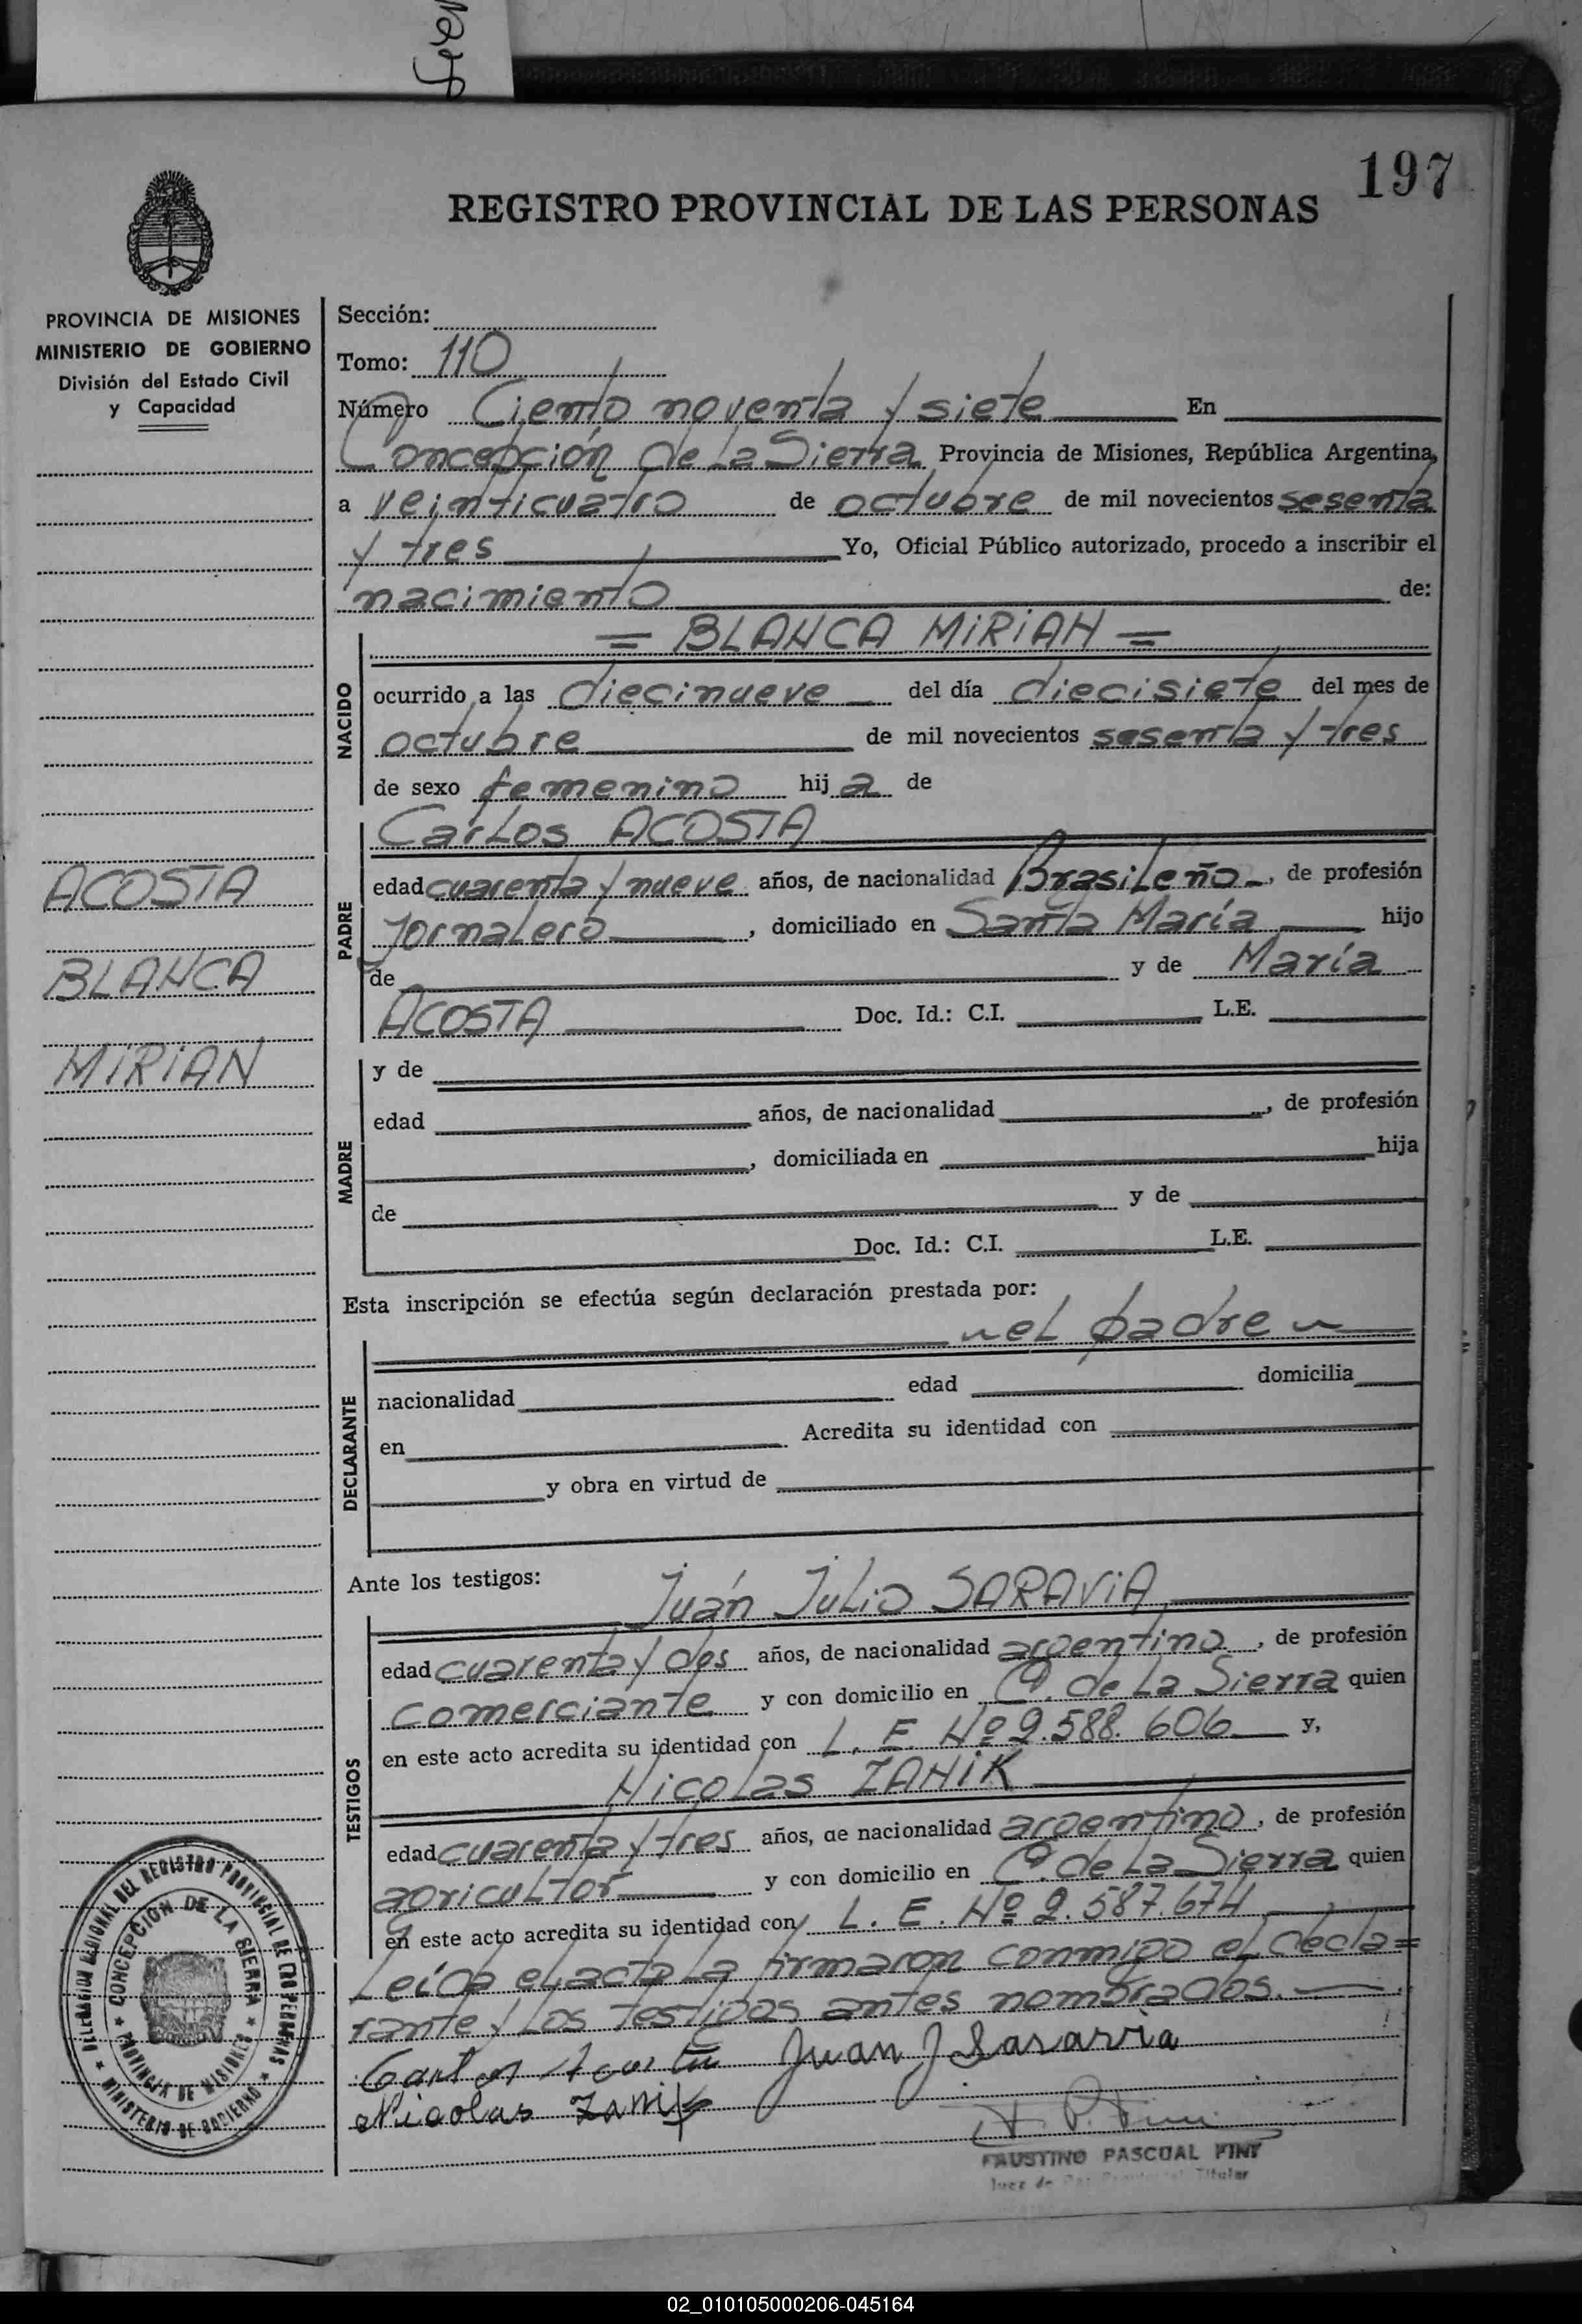 197
REGISTRO PROVINCIAL DE LAS PERSONAS
PROVINCIA DE MISIONES
MINISTERIO DE GOBIERNO
División del Estado Civil
y Capacidad
ACOSTA
BLANCA
MIRIAN
Sección:
Tomo: 110
Número Ciento noventa y siete En
Concepción de La Sierra Provincia de Misiones, República Argentina,
a veinticuatro de octubre de mil novecientos sesenta
y tres Yo, Oficial Público autorizado, procedo a inscribir el
nacimiento de:
= BLANCA MIRIAN =
NACIDO
ocurrido a las diecinueve del día diecisiete del mes de
octubre de mil novecientos sesenta y tres
de sexo femenino hij a de
PADRE
Carlos ACOSTA
edad cuarenta y nueve años, de nacionalidad Brasileño, de profesión
Jornalero, domiciliado en Santa María hijo
de y de María
ACOSTA Doc. Id.: C.I. L.E.
MADRE
y de
edad años, de nacionalidad , de profesión
, domiciliada en hija
de y de
Doc. Id.: C.I. L.E.
Esta inscripción se efectúa según declaración prestada por:
el padre
DECLARANTE
nacionalidad edad domicilia
en Acredita su identidad con
y obra en virtud de
Ante los testigos: Juán Julio SARAVIA
TESTIGOS
edad cuarenta y dos años, de nacionalidad argentino, de profesión
comerciante y con domicilio en Cª. de La Sierra quien
en este acto acredita su identidad con L. E. Nº 2.588.606 y,
Nicolas ZANIK
edad cuarenta y tres años, de nacionalidad argentino, de profesión
agricultor y con domicilio en Cª. de La Sierra quien
en este acto acredita su identidad con L. E. Nº 2.587.674
Leída el acta La firmaron conmigo el decla=
rante y Los testigos antes nombrados.
Carlos Acosta Juan J Saravia
Nicolas Zanik
FAUSTINO PASCUAL FINI
Juez de Paz Titular
DELEGACION REGIONAL DEL REGISTRO PROVINCIAL DE LAS PERSONAS
MINISTERIO DE GOBIERNO
CONCEPCION DE LA SIERRA
PROVINCIA DE MISIONES
02_010105000206-045164